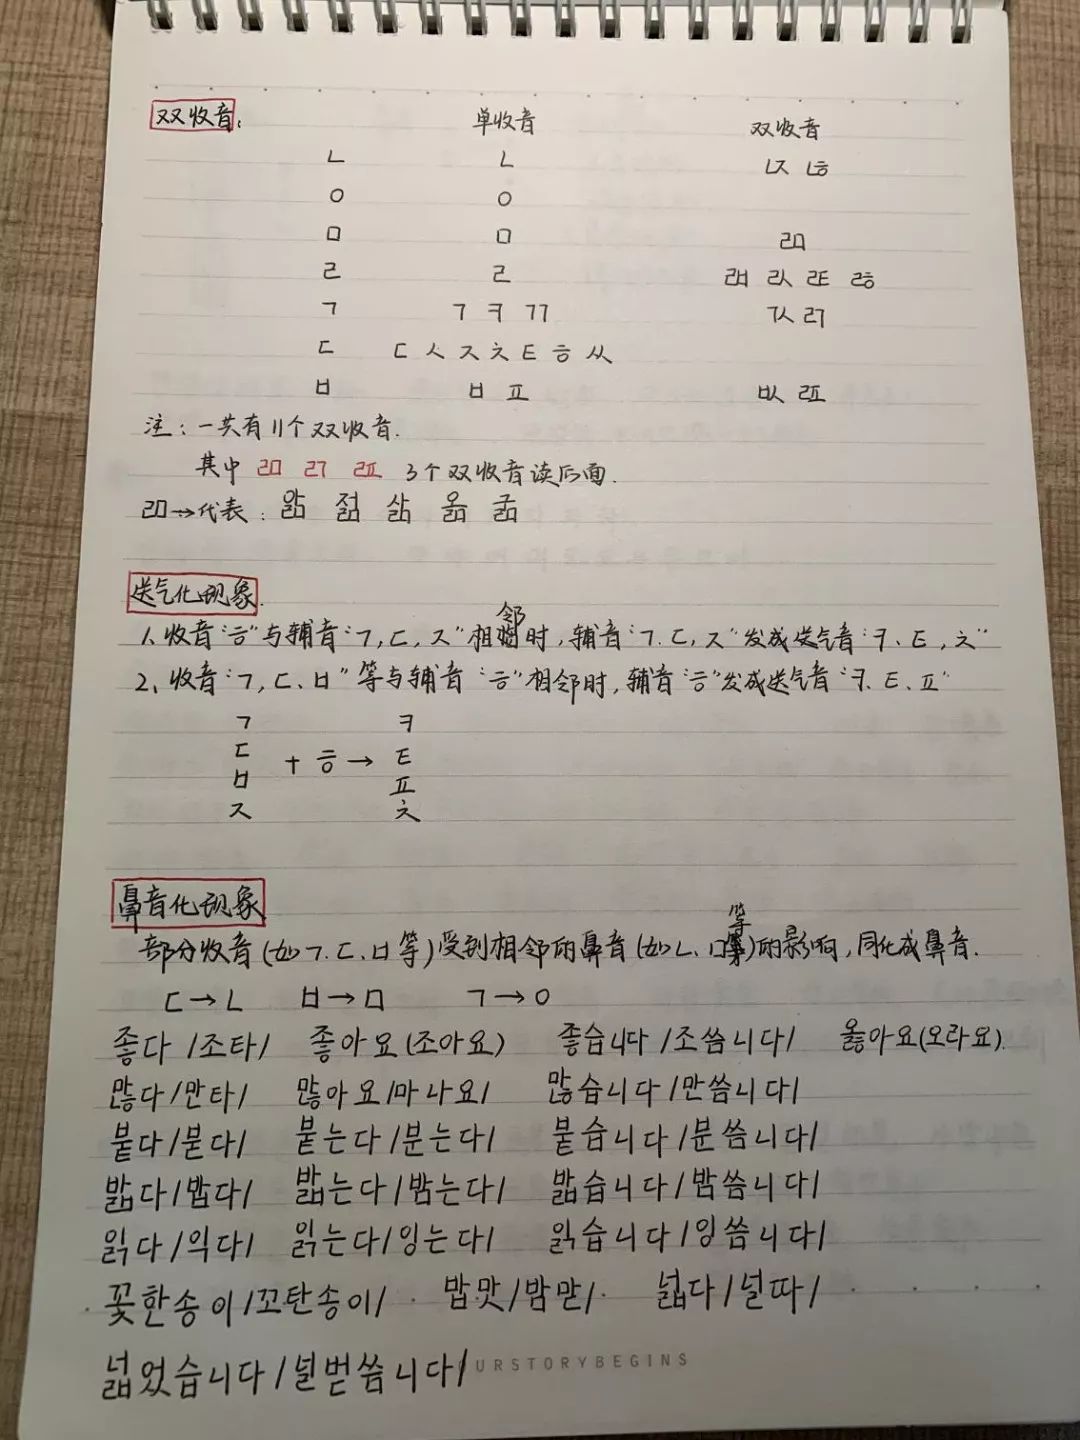 双收音: 单收音 双收音
ㄴ ㄴ ㄵ ㄶ
ㅇ ㅇ
ㅁ ㅁ ㄻ
ㄹ ㄹ ㄼ ㄽ ㄾ ㅀ
ㄱ ㄱ ㅋ ㄲ ㄳ ㄺ
ㄷ ㄷ ㅅ ㅈ ㅊ ㅌ ㅎ ㅆ
ㅂ ㅂ ㅍ ㅄ ㄿ
注:一共有11个双收音.
其中 ㄻ ㄺ ㄿ 3个双收音读后面.
ㄻ→代表: 앎 젊 삶 옮 굶
送气化现象.
1、收音“ㅎ”与辅音“ㄱ,ㄷ,ㅈ”相邻时,辅音“ㄱ.ㄷ,ㅈ”发成送气音“ㅋ、ㅌ,ㅊ”
2、收音“ㄱ,ㄷ、ㅂ”等与辅音“ㅎ”相邻时,辅音“ㅎ”发成送气音“ㅋ、ㅌ、ㅍ”
ㄱ ㅋ
ㄷ + ㅎ → ㅌ
ㅂ ㅍ
ㅈ ㅊ
鼻音化现象
部分收音(如ㄱ.ㄷ、ㅂ等)受到相邻的鼻音(如ㄴ、ㅁ等)的影响,同化成鼻音.
ㄷ→ㄴ ㅂ→ㅁ ㄱ→ㅇ
좋다 /조타/ 좋아요(조아요) 좋습니다 /조씀니다/ 옳아요(오라요).
많다/만타/ 많아요/마나요/ 많습니다/만씀니다/
붙다/붇다/ 붙는다/분는다/ 붙습니다/분씀니다/
밟다/밥다/ 밟는다/밤는다/ 밟습니다/밤씀니다/
읽다/익다/ 읽는다/잉는다/ 읽습니다/잉씀니다/
꽃한송이/꼬탄송이/ 밥맛/밤맏/ 넓다/널따/
넓었습니다/널벋씀니다/
URSTORYBEGINS